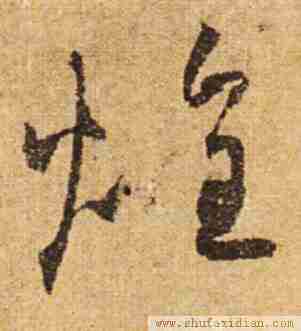 煌
www.shufaxidian.com